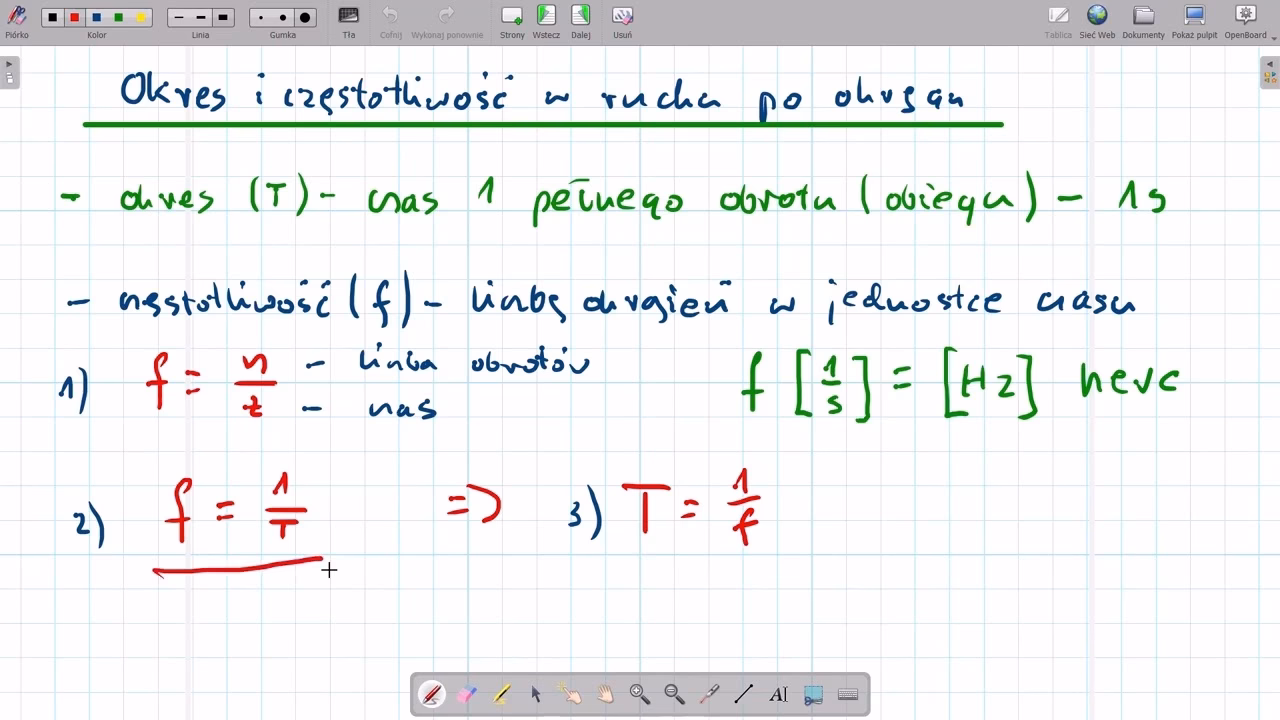 Piórko Kolor Linia Gumka Tła Cofnij Wykonaj ponownie Strony Wstecz Dalej Usuń Tablica Sieć Web Dokumenty Pokaż pulpit OpenBoard
Okres i częstotliwość w ruchu po okręgu
- okres (T) - czas 1 pełnego obrotu (obiegu) - 1s
- częstotliwość (f) - liczbę okrążeń w jednostce czasu
1) f = n/t - liczba obrotów - czas f [1/s] = [Hz] herc
2) f = 1/T => 3) T = 1/f